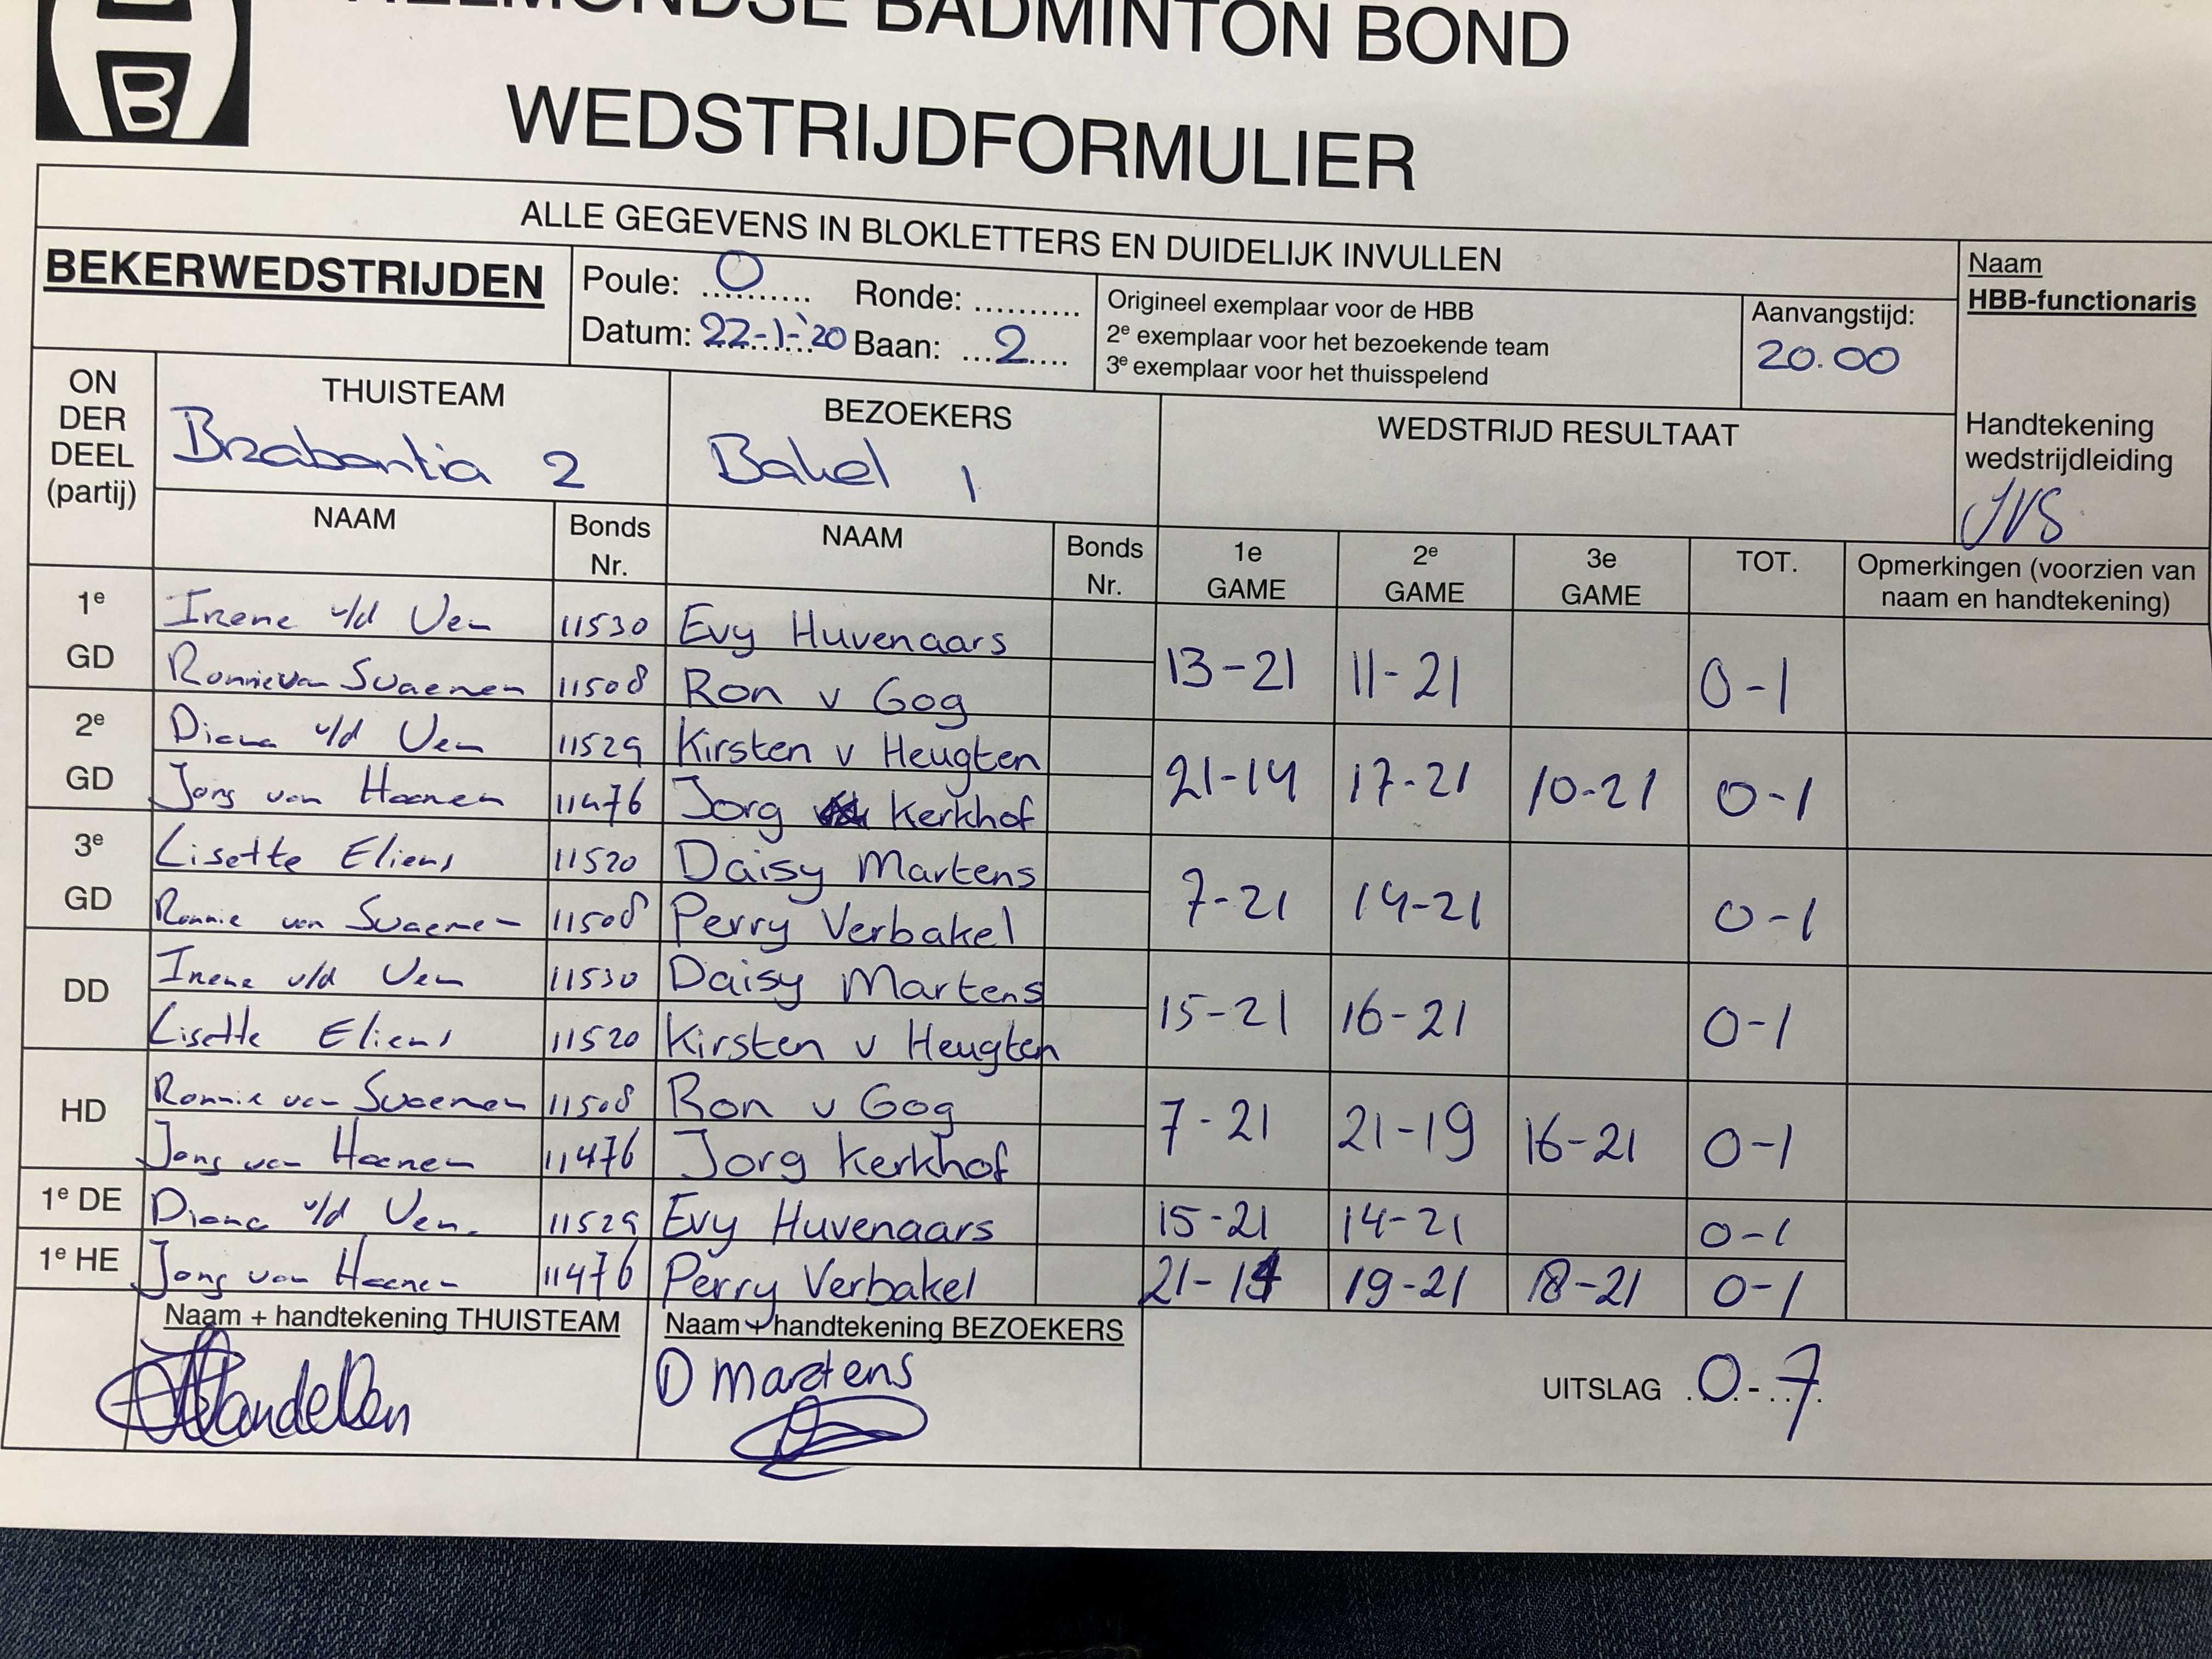 HELMONDSE BADMINTON BOND
B
WEDSTRIJDFORMULIER
ALLE GEGEVENS IN BLOKLETTERS EN DUIDELIJK INVULLEN
BEKERWEDSTRIJDEN
Poule: O Ronde: ..........
Datum: 22-1-'20 Baan: ...2....
Origineel exemplaar voor de HBB
2e exemplaar voor het bezoekende team
3e exemplaar voor het thuisspelend
Aanvangstijd:
20.00
Naam
HBB-functionaris
Handtekening
wedstrijdleiding
JVS
ON
DER
DEEL
(partij)
THUISTEAM
Brabantia 2
BEZOEKERS
Bakel 1
WEDSTRIJD RESULTAAT
NAAM Bonds Nr. NAAM Bonds Nr. 1e GAME 2e GAME 3e GAME TOT. Opmerkingen (voorzien van naam en handtekening)
1e GD
Irene v/d Ven 11530 Evy Huvenaars
Ronnie van Svaenen 11508 Ron v Gog
13-21 11-21 0-1
2e GD
Diana v/d Ven 11529 Kirsten v Heugten
Jong van Haenen 11476 Jorg Kerkhof
21-14 17-21 10-21 0-1
3e GD
Lisette Eliens 11520 Daisy Martens
Ronnie van Svaenen 11508 Perry Verbakel
7-21 14-21 0-1
DD
Irene v/d Ven 11530 Daisy Martens
Lisette Eliens 11520 Kirsten v Heugten
15-21 16-21 0-1
HD
Ronnie van Svaenen 11508 Ron v Gog
Jong van Haenen 11476 Jorg Kerkhof
7-21 21-19 16-21 0-1
1e DE Diana v/d Ven. 11529 Evy Huvenaars 15-21 14-21 0-1
1e HE Jong van Haenen 11476 Perry Verbakel 21-14 19-21 18-21 0-1
Naam + handtekening THUISTEAM
Naam + handtekening BEZOEKERS
D Martens
UITSLAG 0-7